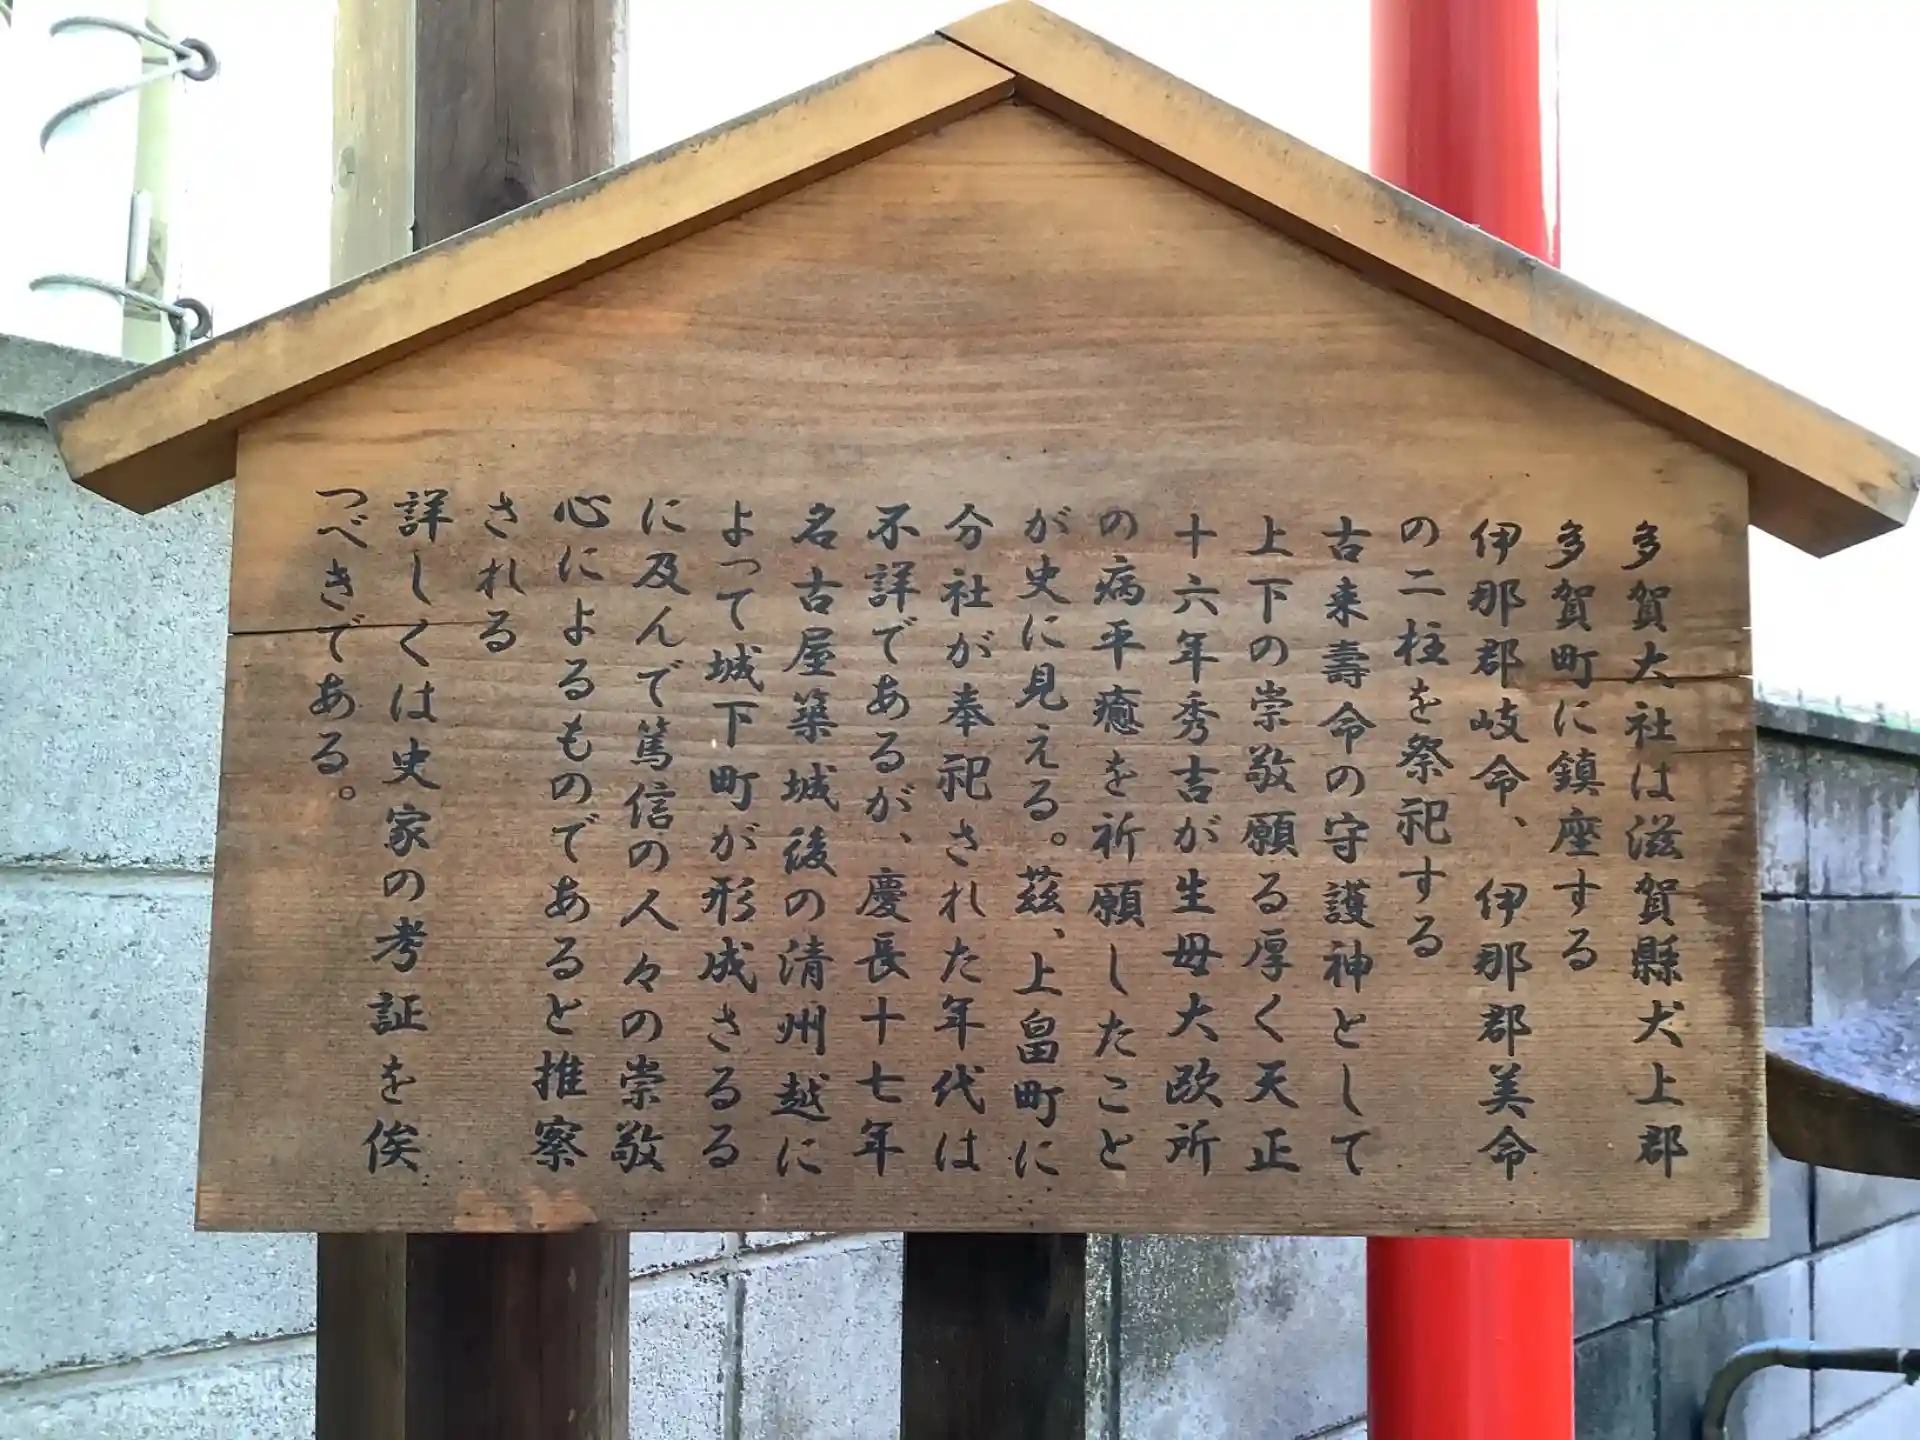 多賀大社は滋賀縣犬上郡
多賀町に鎮座する
伊那郡岐命、伊那郡美命
の二柱を祭祀する
古来壽命の守護神として
上下の崇敬願る厚く天正
十六年秀吉が生母大政所
の病平癒を祈願したこと
が史に見える。茲、上畠町に
分社が奉祀された年代は
不詳であるが、慶長十七年
名古屋築城後の清州越に
よって城下町が形成さるる
に及んで篤信の人々の崇敬
心によるものであると推察
される
詳しくは史家の考証を俟
つべきである。